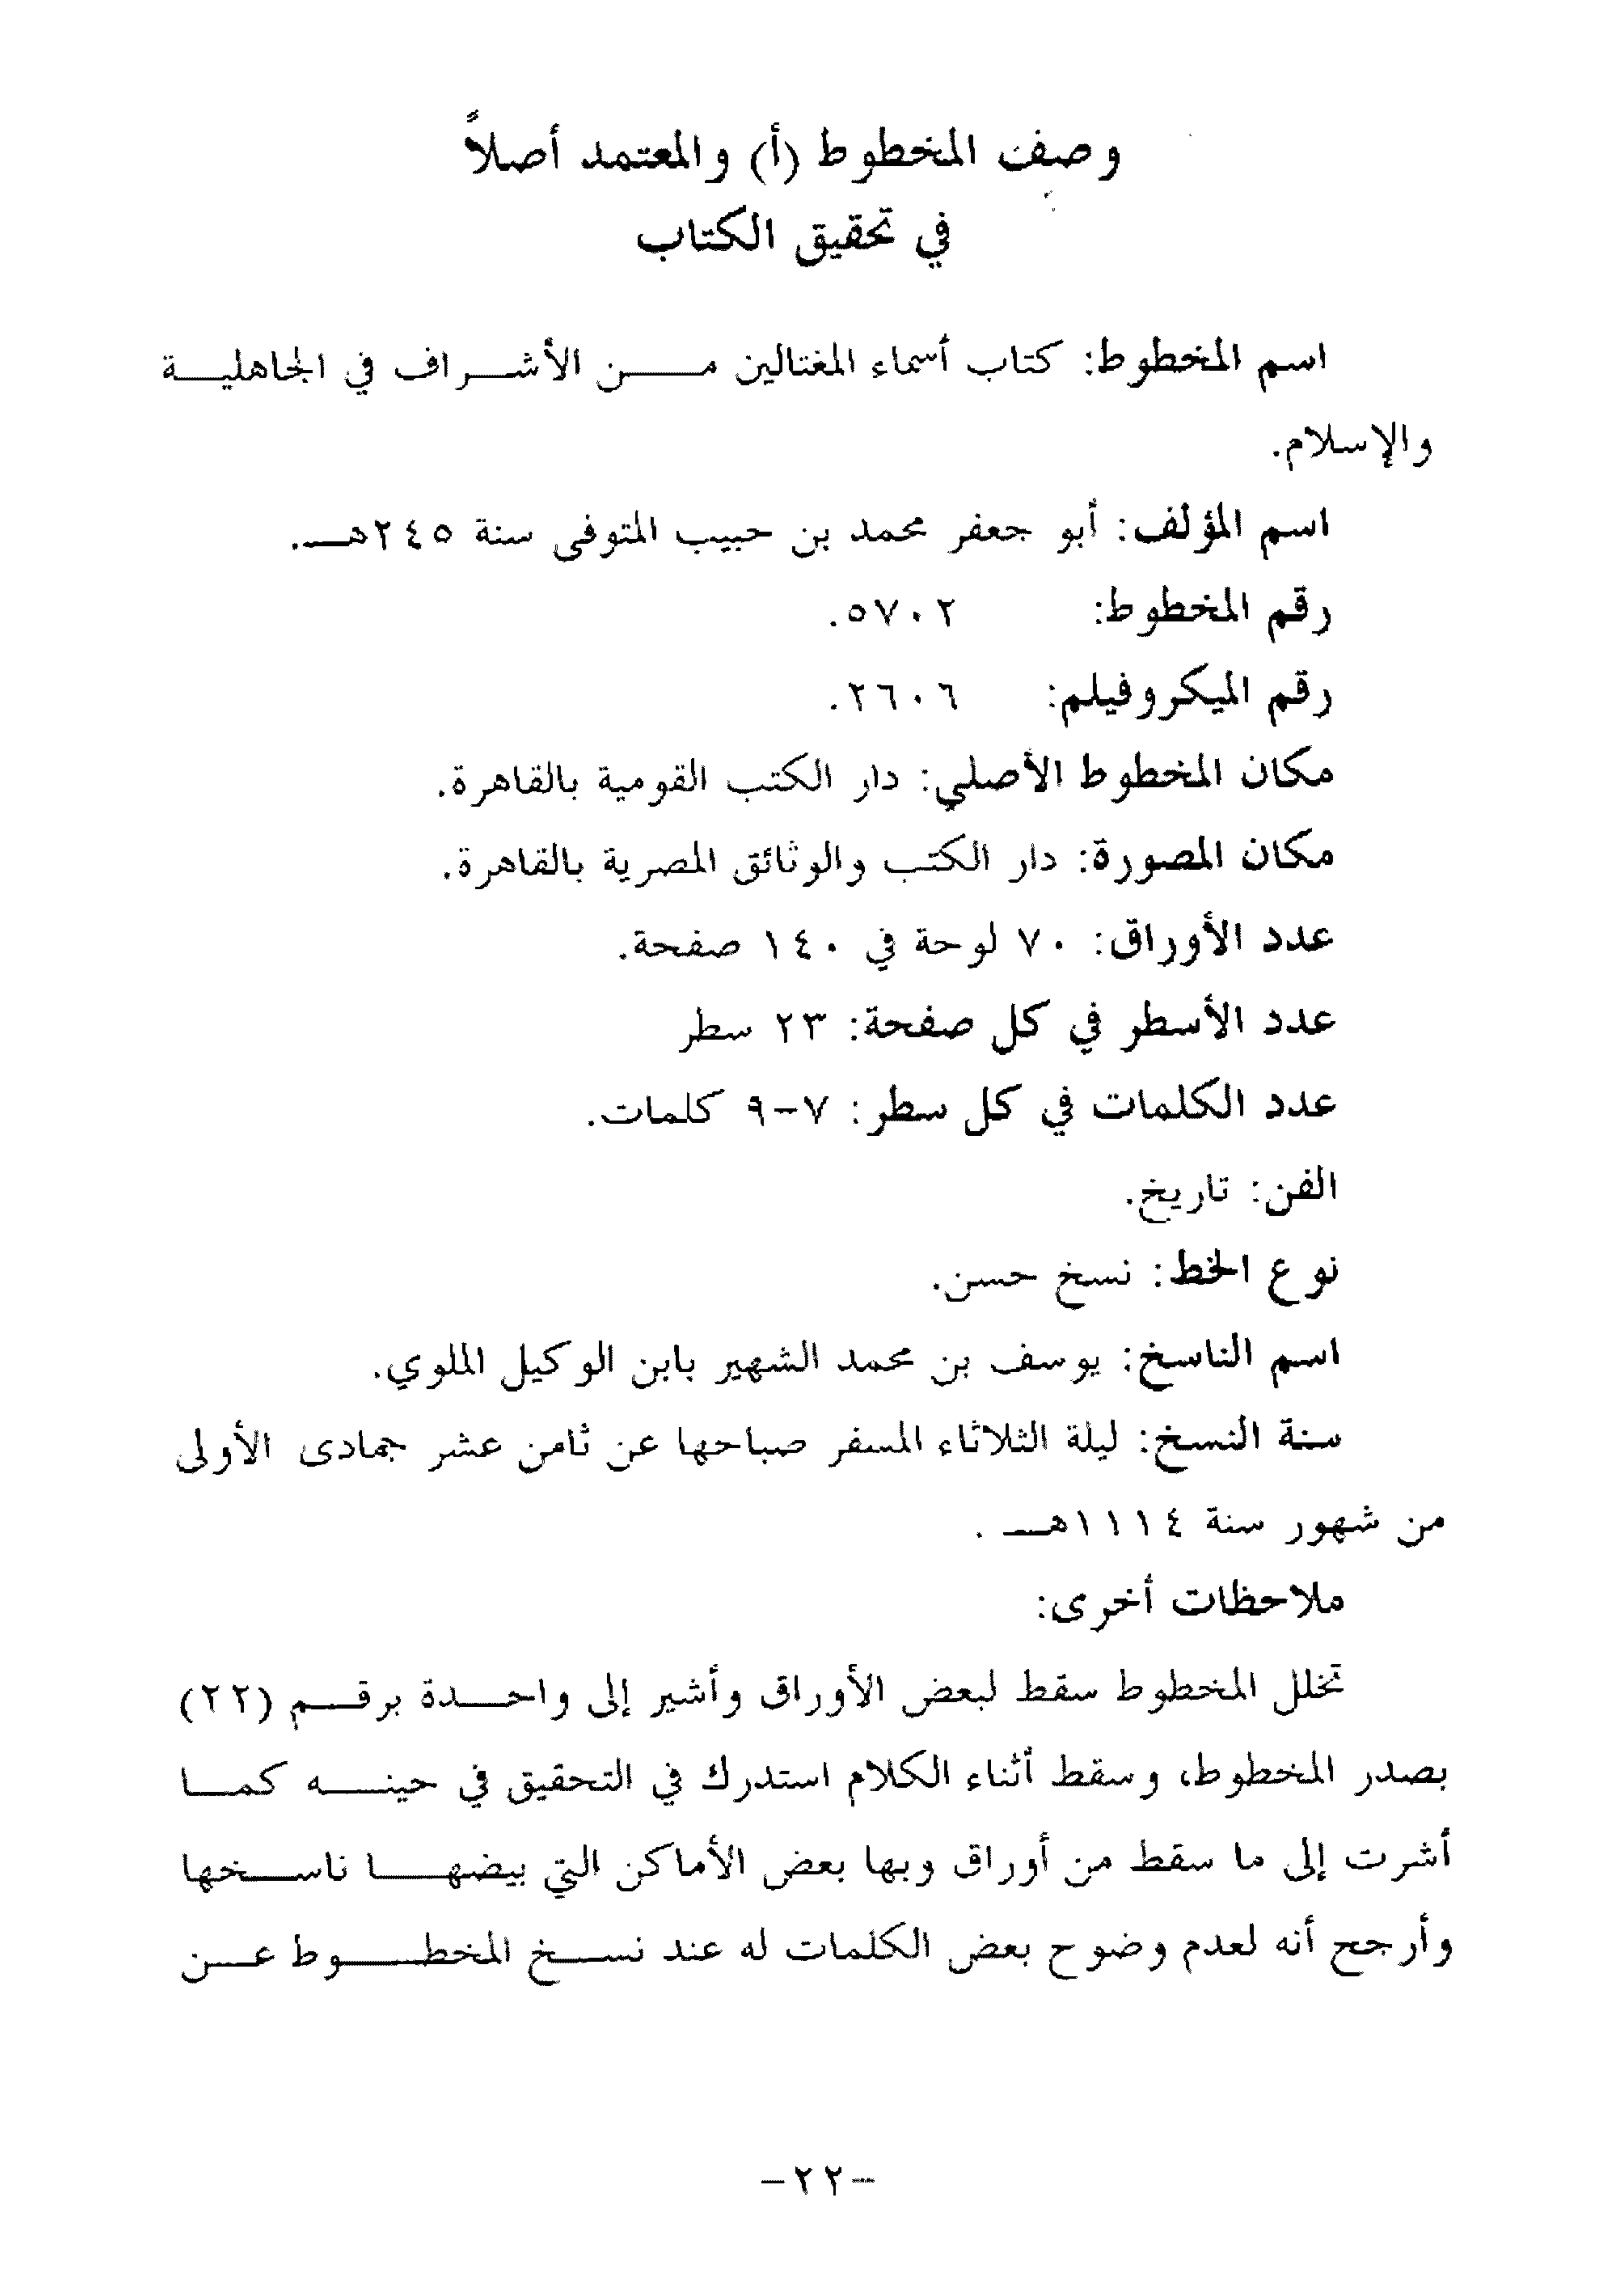 وصف المخطوط (أ) والمعتمد أصلاً
في تحقيق الكتاب
اسم المخطوط: كتاب أسماء المغتالين من الأشراف في الجاهلية
والإسلام.
اسم المؤلف: أبو جعفر محمد بن حبيب المتوفى سنة ٢٤٥هـ.
رقم المخطوط: ٥٧٠٢.
رقم الميكروفيلم: ٢٦٠٦.
مكان المخطوط الأصلي: دار الكتب القومية بالقاهرة.
مكان المصورة: دار الكتب والوثائق المصرية بالقاهرة.
عدد الأوراق: ٧٠ لوحة في ١٤٠ صفحة.
عدد الأسطر في كل صفحة: ٢٣ سطر
عدد الكلمات في كل سطر: ٧-٩ كلمات.
الفن: تاريخ.
نوع الخط: نسخ حسن.
اسم الناسخ: يوسف بن محمد الشهير بابن الوكيل الملوي.
سنة النسخ: ليلة الثلاثاء المسفر صباحها عن ثامن عشر جمادى الأولى
من شهور سنة ١١١٤هـ .
ملاحظات أخرى:
تخلل المخطوط سقط لبعض الأوراق وأشير إلى واحدة برقم (٢٢)
بصدر المخطوط، وسقط أثناء الكلام استدرك في التحقيق في حينه كما
أشرت إلى ما سقط من أوراق وبها بعض الأماكن التي بيضها ناسخها
وأرجح أنه لعدم وضوح بعض الكلمات له عند نسخ المخطوط عن
-٢٢-